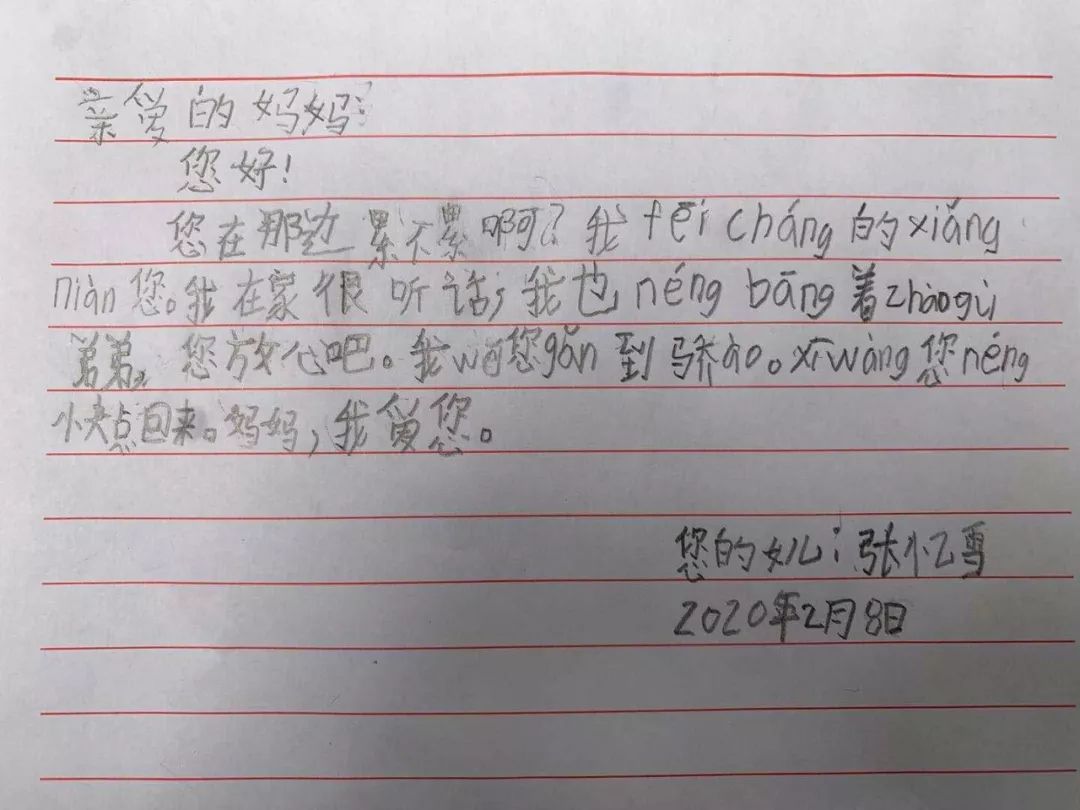 亲爱的妈妈:
您好!
您在那边累不累啊?我fēi cháng的xiǎng
niàn您。我在家很听话,我也néng bāng着zhàogù
弟弟,您放心吧。我wèi您gǎn到骄ào。xīwàng您néng
快点回来。妈妈,我爱您。
您的女儿:张忆雪
2020年2月8日